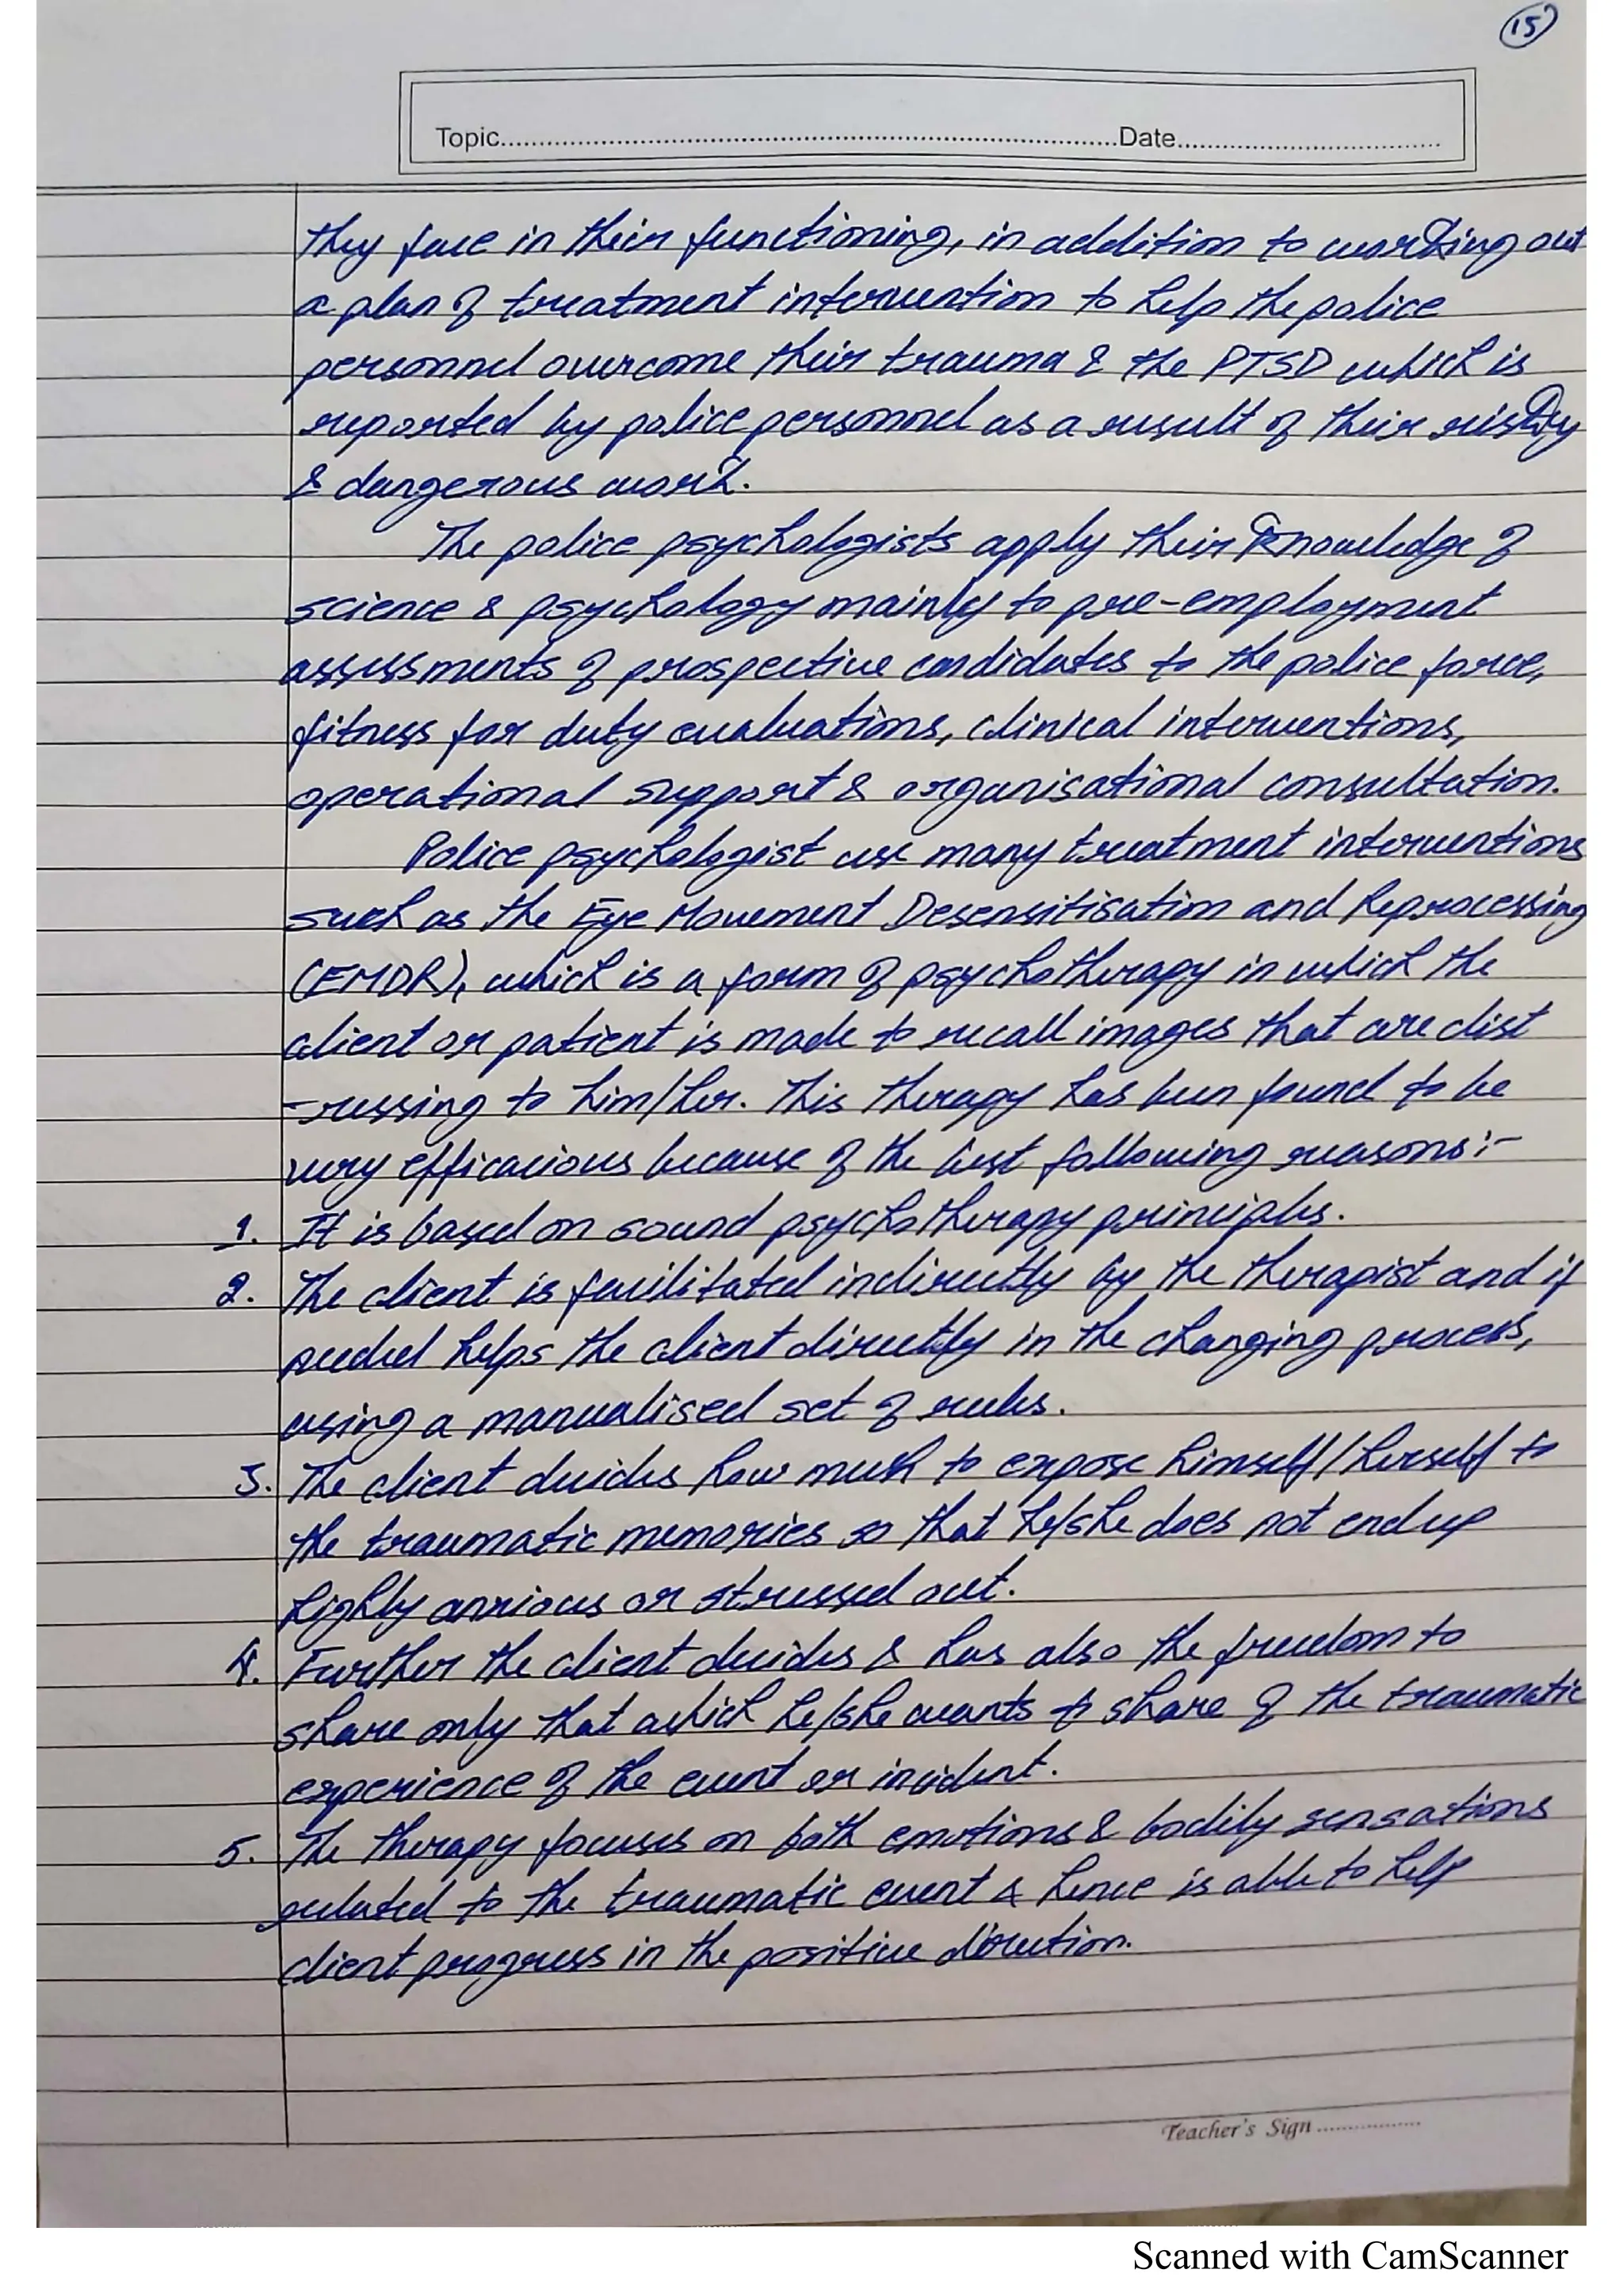 15
Topic..........Date..........
they face in their functioning, in addition to working out
a plan of treatment intervention to help the police
personnel overcome their trauma & the PTSD which is
reported by police personnel as a result of their risky
& dangerous work.
The police psychologists apply their knowledge of
science & psychology mainly to pre-employment
assessments of prospective candidates to the police force,
fitness for duty evaluations, clinical interventions,
operational support & organisational consultation.
Police psychologist use many treatment interventions
such as the Eye Movement Desensitisation and Reprocessing
(EMDR), which is a form of psychotherapy in which the
client or patient is made to recall images that are dist
-ressing to him/her. This therapy has been found to be
very efficacious because of the following reasons:-
1. It is based on sound psychotherapy principles.
2. The client is facilitated indirectly by the therapist and if
needed helps the client directly in the changing process,
using a manualised set of rules.
3. The client decides how much to expose himself/herself to
the traumatic memories so that he/she does not end up
highly anxious or stressed out.
4. Further the client decides & has also the freedom to
share only that which he/she wants to share of the traumatic
experience of the event or incident.
5. The therapy focuses on both emotions & bodily sensations
related to the traumatic event & hence is able to help
client progress in the positive direction.
Teacher's Sign ..........
Scanned with CamScanner